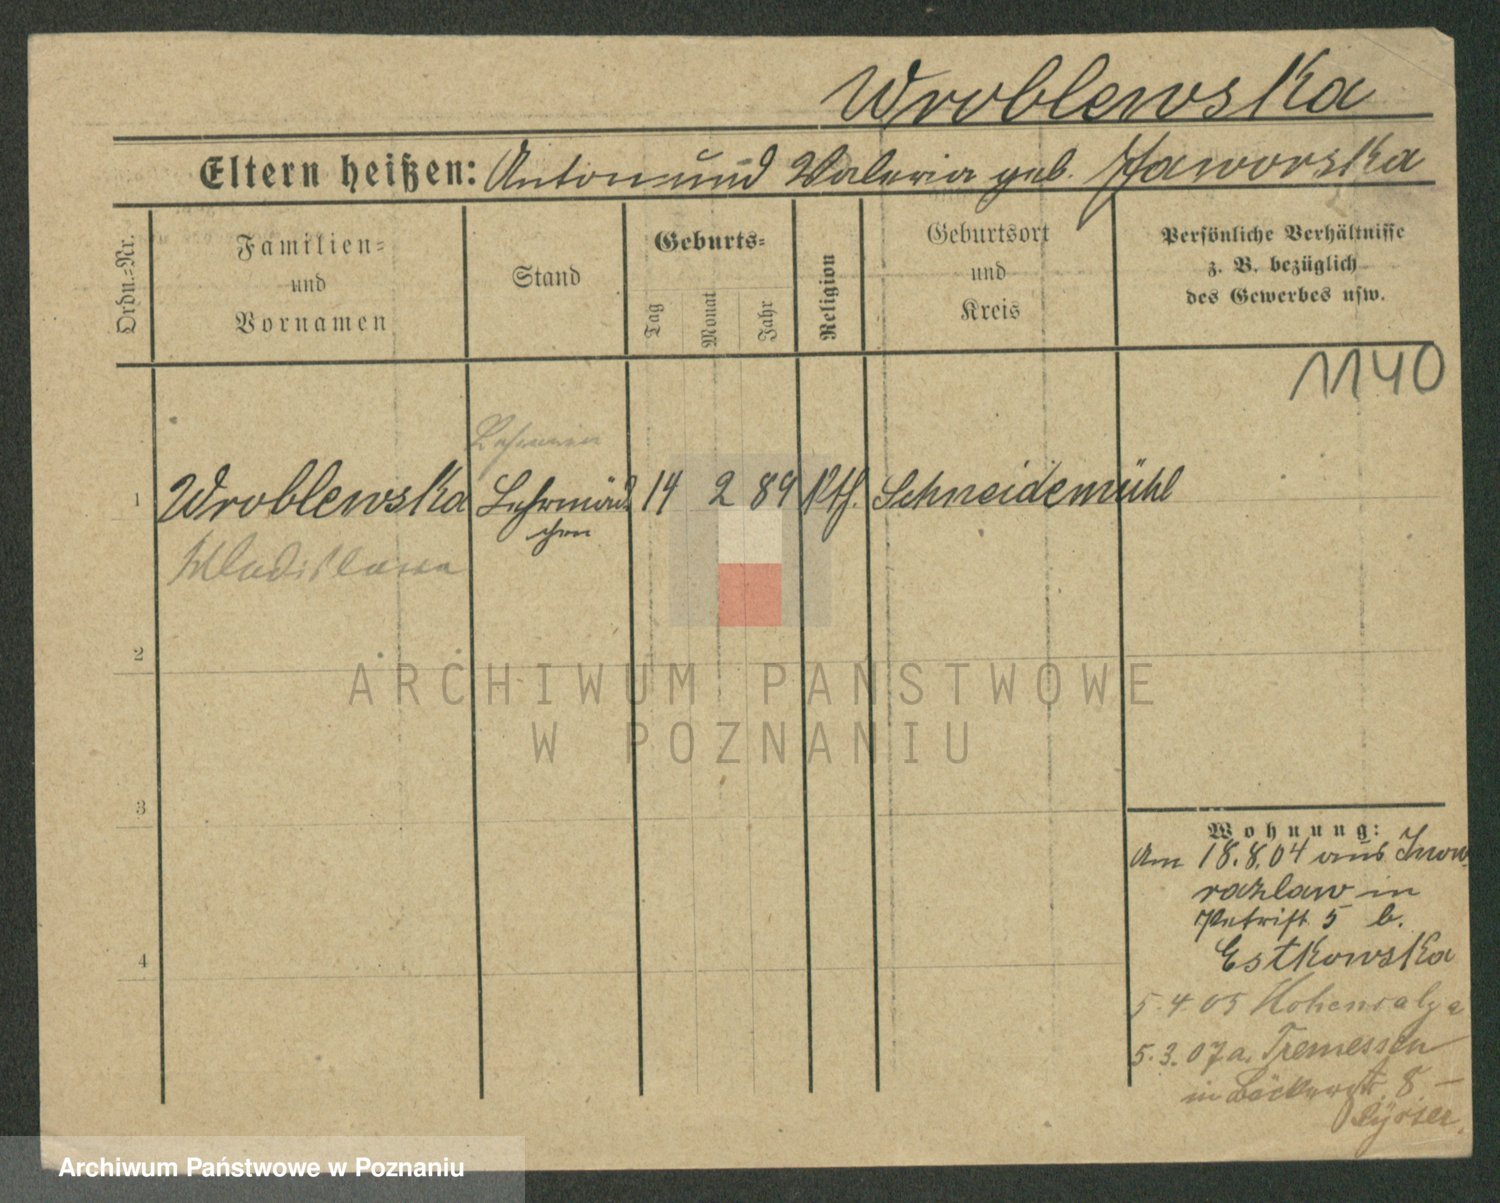 Wroblewska
Eltern heißen: Anton und Valeria geb. Jaworska
Ordn.=Nr.
Familien=
und
Vornamen
Stand
Geburts=
Tag
Monat
Jahr
Religion
Geburtsort
und
Kreis
Persönliche Verhältnisse
z. B. bezüglich
des Gewerbes usw.
1140
1
Wroblewska
Wladislawa
Lehrerin
Lehrmäd
chen
14 2 89 kth. Schneidemühl
2
3
4
ARCHIWUM PAŃSTWOWE
W POZNANIU
Wohnung:
Am 18.8.04 aus Inow
razlaw in
5 b.
Estkowska
5.4.05 Hohensalza
5.3.07 a. Tremessen
in Bäckerstr. 8 –
Archiwum Państwowe w Poznaniu